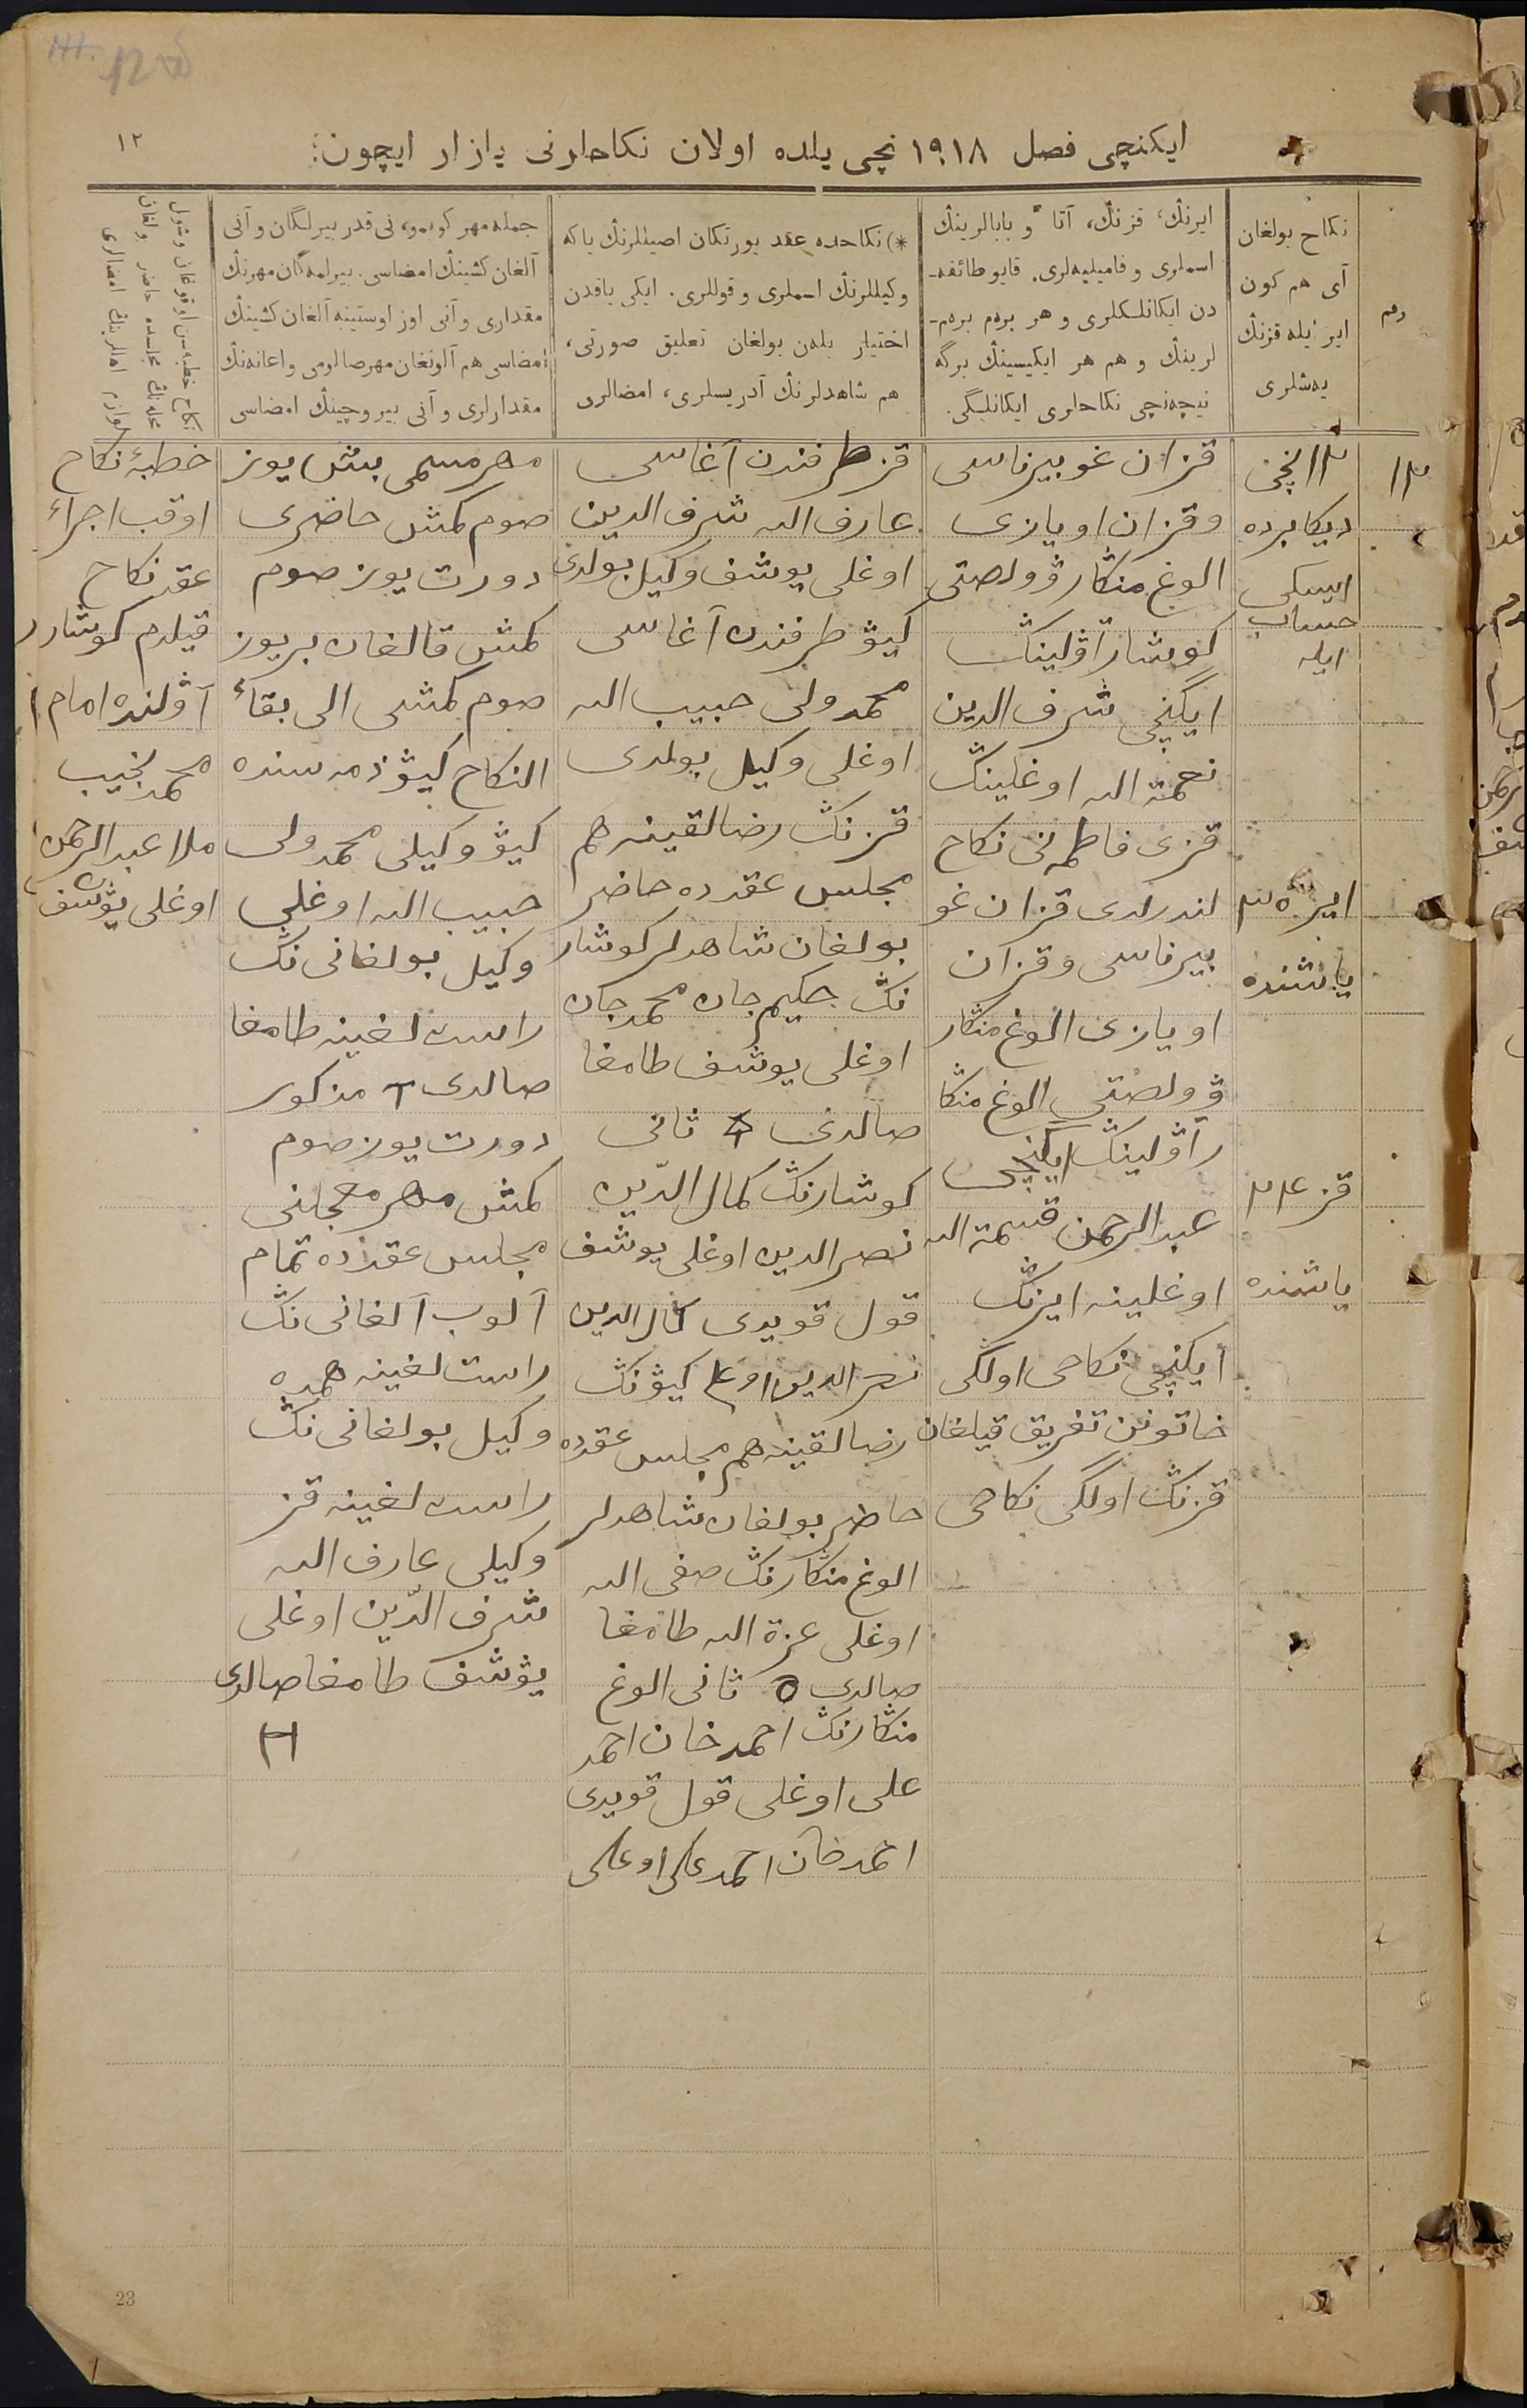 ١٢
ايكنچی فصل ١٩١٨ نچی يلده اولان نكاحلرنی يازار ايچون:
رقم
نكاح بولغان
آی هم كون
اير ايله قزنڭ
يه‌شلری
ايرنڭ، قزنڭ، آتا و بابالرينڭ
اسملری و فاميليه‌لری. قايو طائفه‌-
دن ايكانلكلری و هر برم برم-
لرينڭ و هم هر ايكيسينڭ برگه
نيچه‌نچی نكاحلری ايكانلگی.
*) نكاحده عقد يورتكان اصيللرنڭ ياكه
وكيللرنڭ اسملری و قوللری. ايكی ياقدن
اختيار بله‌ن بولغان تعليق صورتی،
هم شاهدلرنڭ آدريسلری، امضالری
جمله مهر كوبمو، نی قدر بيرلگان و آنی
آلغان كشينڭ امضاسی. بيرلمه‌گان مهرنڭ
مقداری و آنی اوز اوستينه آلغان كشينڭ
امضاسی هم آلونغان مهر صالومی و اعانه‌نڭ
مقدارلری و آنی بيروچينڭ امضاسی
نكاح خطبه‌سن اوقوغان و شول
محله‌نڭ مجلسده حاضر ولغان
امضالری
١٣
١٣ نچی
ديكابرده
ايسكی
حساب
ايله
ير ٥٣
ياشنده
قز ٢٤
ياشنده
قزان غوبيرناسی
و قزان اويازی
الوغ منكار ڤولصتی
كوشار آڤلينڭ
ايكنچی شرف الدين
نعمة الله اوغلينڭ
قزی فاطمه نی نكاح
لندرلدی قزان غو
بيرناسی و قزان
اويازی الوغ منكار
ڤولصتی الوغ منكا
ر آڤلينڭ ايكنچی
عبد الرحمن قسمة الله
اوغلينه ايرنڭ
ايكنچی نكاحی اولگی
خاتونن تفريق قيلغان
قزنڭ اولگی نكاحی
قز طرفندن آغاسی
عارف الله شرف الدين
اوغلی يوشف وكيل بولدی
كيوڤ طرفندن آغاسی
محمد ولی حبيب الله
اوغلی وكيل بولدی
قزنڭ رضالقينه هم
مجلس عقدده حاضر
بولغان شاهدلر كوشار
نڭ حكيم جان محمد جان
اوغلی يوشف طامغا
صالدی ثانی
كوشارنڭ كمال الدين
نصر الدين اوغلی يوشف
قول قويدی كمال الدين
نصر الدين اوغلی كيوڤنڭ
رضالقينه هم مجلس عقدده
حاضر بولغان شاهدلر
الوغ منكارنڭ صفی الله
اوغلی عزة الله طامغا
صالدی ثانی الوغ
منكارنڭ احمد خان احمد
علی اوغلی قول قويدی
احمد خان احمد علی اوغلی
مهر مسمی بش يوز
صوم كمش حاضری
دورت يوز صوم
كمش قالغان بر يوز
صوم كمشی الی بقاء
النكاح كيوڤ ذمه سنده
كيوڤ وكيلی محمد ولی
حبيب الله اوغلی
وكيل بولغانی نڭ
راست لغينه طامغا
صالدی مذكور
دورت يوز صوم
كمش مهر معجلنی
مجلس عقدده تمام
آلوب آلغانی نڭ
راست لغينه همده
وكيل بولغانی نڭ
راست لغينه قز
وكيلی عارف الله
شرف الدّين اوغلی
يوشف طامغا صالدی
خطبهٔ نكاح
اوقب اجراء
عقد نكاح
قيلدم كوشار
آڤلنده امام
محمد نجيب
ملا عبد الرحمن
اوغلی يوشف
23